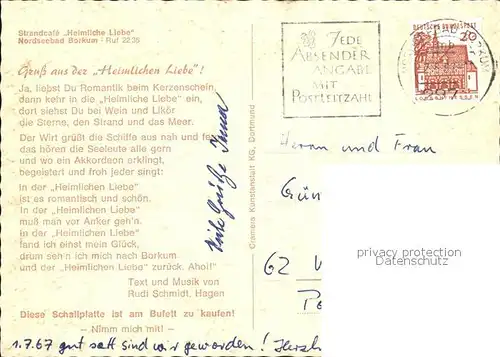 Strandcafé „Heimliche Liebe"
Nordseebad Borkum · Ruf 2235
Gruß aus der „Heimlichen Liebe"!
Ja, liebst Du Romantik beim Kerzenschein,
dann kehr in die „Heimliche Liebe" ein,
dort siehst Du bei Wein und Likör
die Sterne, den Strand und das Meer.
Der Wirt grüßt die Schiffe aus nah und fern,
das hören die Seeleute alle gern
und wo ein Akkordeon erklingt,
begeistert und froh jeder singt:
In der „Heimlichen Liebe"
ist es romantisch und schön.
In der „Heimlichen Liebe"
muß man vor Anker geh'n.
In der „Heimlichen Liebe"
fand ich einst mein Glück,
drum seh'n ich mich nach Borkum
und der „Heimlichen Liebe" zurück. Ahoi!"
Text und Musik von
Rudi Schmidt, Hagen
Diese Schallplatte ist am Bufett zu kaufen!
— Nimm mich mit! —
1.7.67 gut satt sind wir geworden! Herzl
Viele Grüße
Cramers Kunstanstalt KG, Dortmund
JEDE
ABSENDER
ANGABE
MIT
POSTLEITZAHL
DEUTSCHE BUNDESPOST
20
Herrn und Frau
Gün
62
privacy protection
Datenschutz